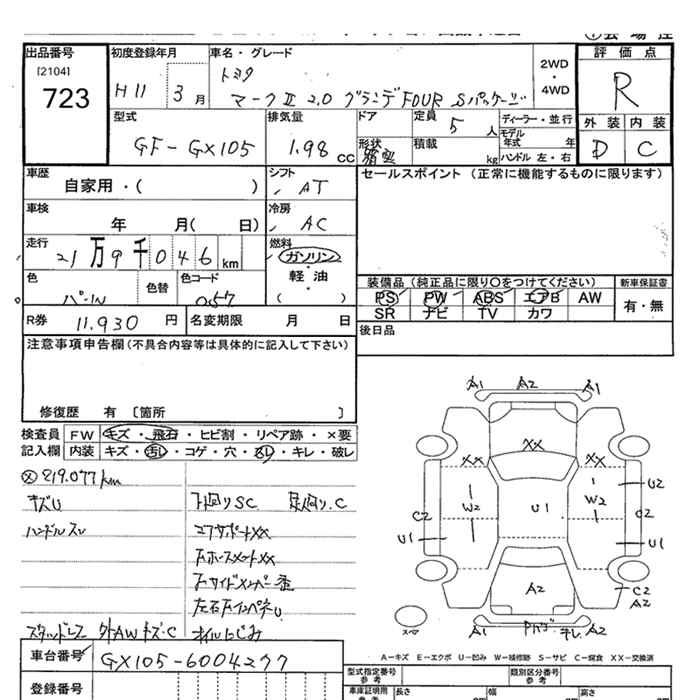 出品番号
[2104]
723
初度登録年月
H11 3 月
車名・グレード
トヨタ
マークⅡ 2.0 グランデFOUR Sパッケージ
2WD
・
4WD
評価点
R
外装 内装
D C
型式
GF-GX105
排気量
1.98 CC
ドア
形状
箱型
定員
5 人
積載
kg
ディーラー・並行
モデル
年式 年
ハンドル 左・右
車歴
自家用・( )
シフト
AT
セールスポイント (正常に機能するものに限ります)
車検
年 月( 日)
冷房
AC
走行
21万9千046 km
燃料
ガソリン
・
軽油
( )
色
パール
色替
色コード
057
装備品 (純正品に限り○をつけてください)
PS PW ABS エアB AW
SR ナビ TV カワ
新車保証書
有・無
R券 11,930 円
名変期限 月 日
後日品
注意事項申告欄(不具合内容等は具体的に記入して下さい)
修復歴 有 〔箇所 〕
検査員
記入欄
FW キズ・飛石・ヒビ割・リペア跡・×要
内装 キズ・汚レ・コゲ・穴・スレ・キレ・破レ
219.077km
キズU
ハンドルスレ
下廻りSC 足廻り.C
コアサポートXX
左右Fインパネu
スタッドレス 外AWキズ・C オイルにじみ
A1 A2 A1
XX
XX XX
W2 U1 W2
U2
C2 C2
U1 U1
A2
C2
A2
スペア
A1 キレ A2
A-キズ E-エクボ U-凹み W-補修跡 S-サビ C-腐食 XX-交換済
車台番号 GX105-6004277
登録番号
型式指定番号
参考
類別区分番号
参考
車庫証明用
参考
長さ 幅 高さ